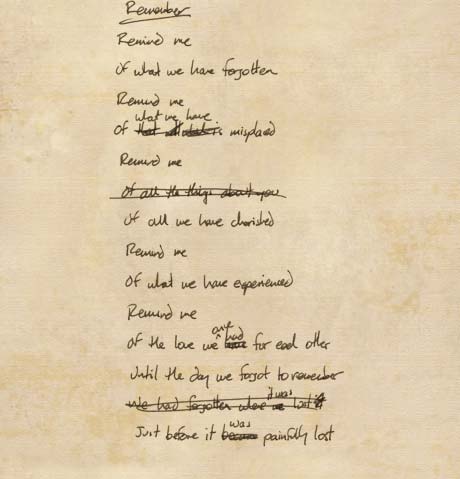 Remember
Remind me
Of what we have forgotten
Remind me
what we have
Of that all that is misplaced
Remind me
Of all the things about you
Of all we have cherished
Remind me
Of what we have experienced
Remind me
Of the love we once had for each other
Until the day we forgot to remember
We had forgotten where it was lost
Just before it was painfully lost